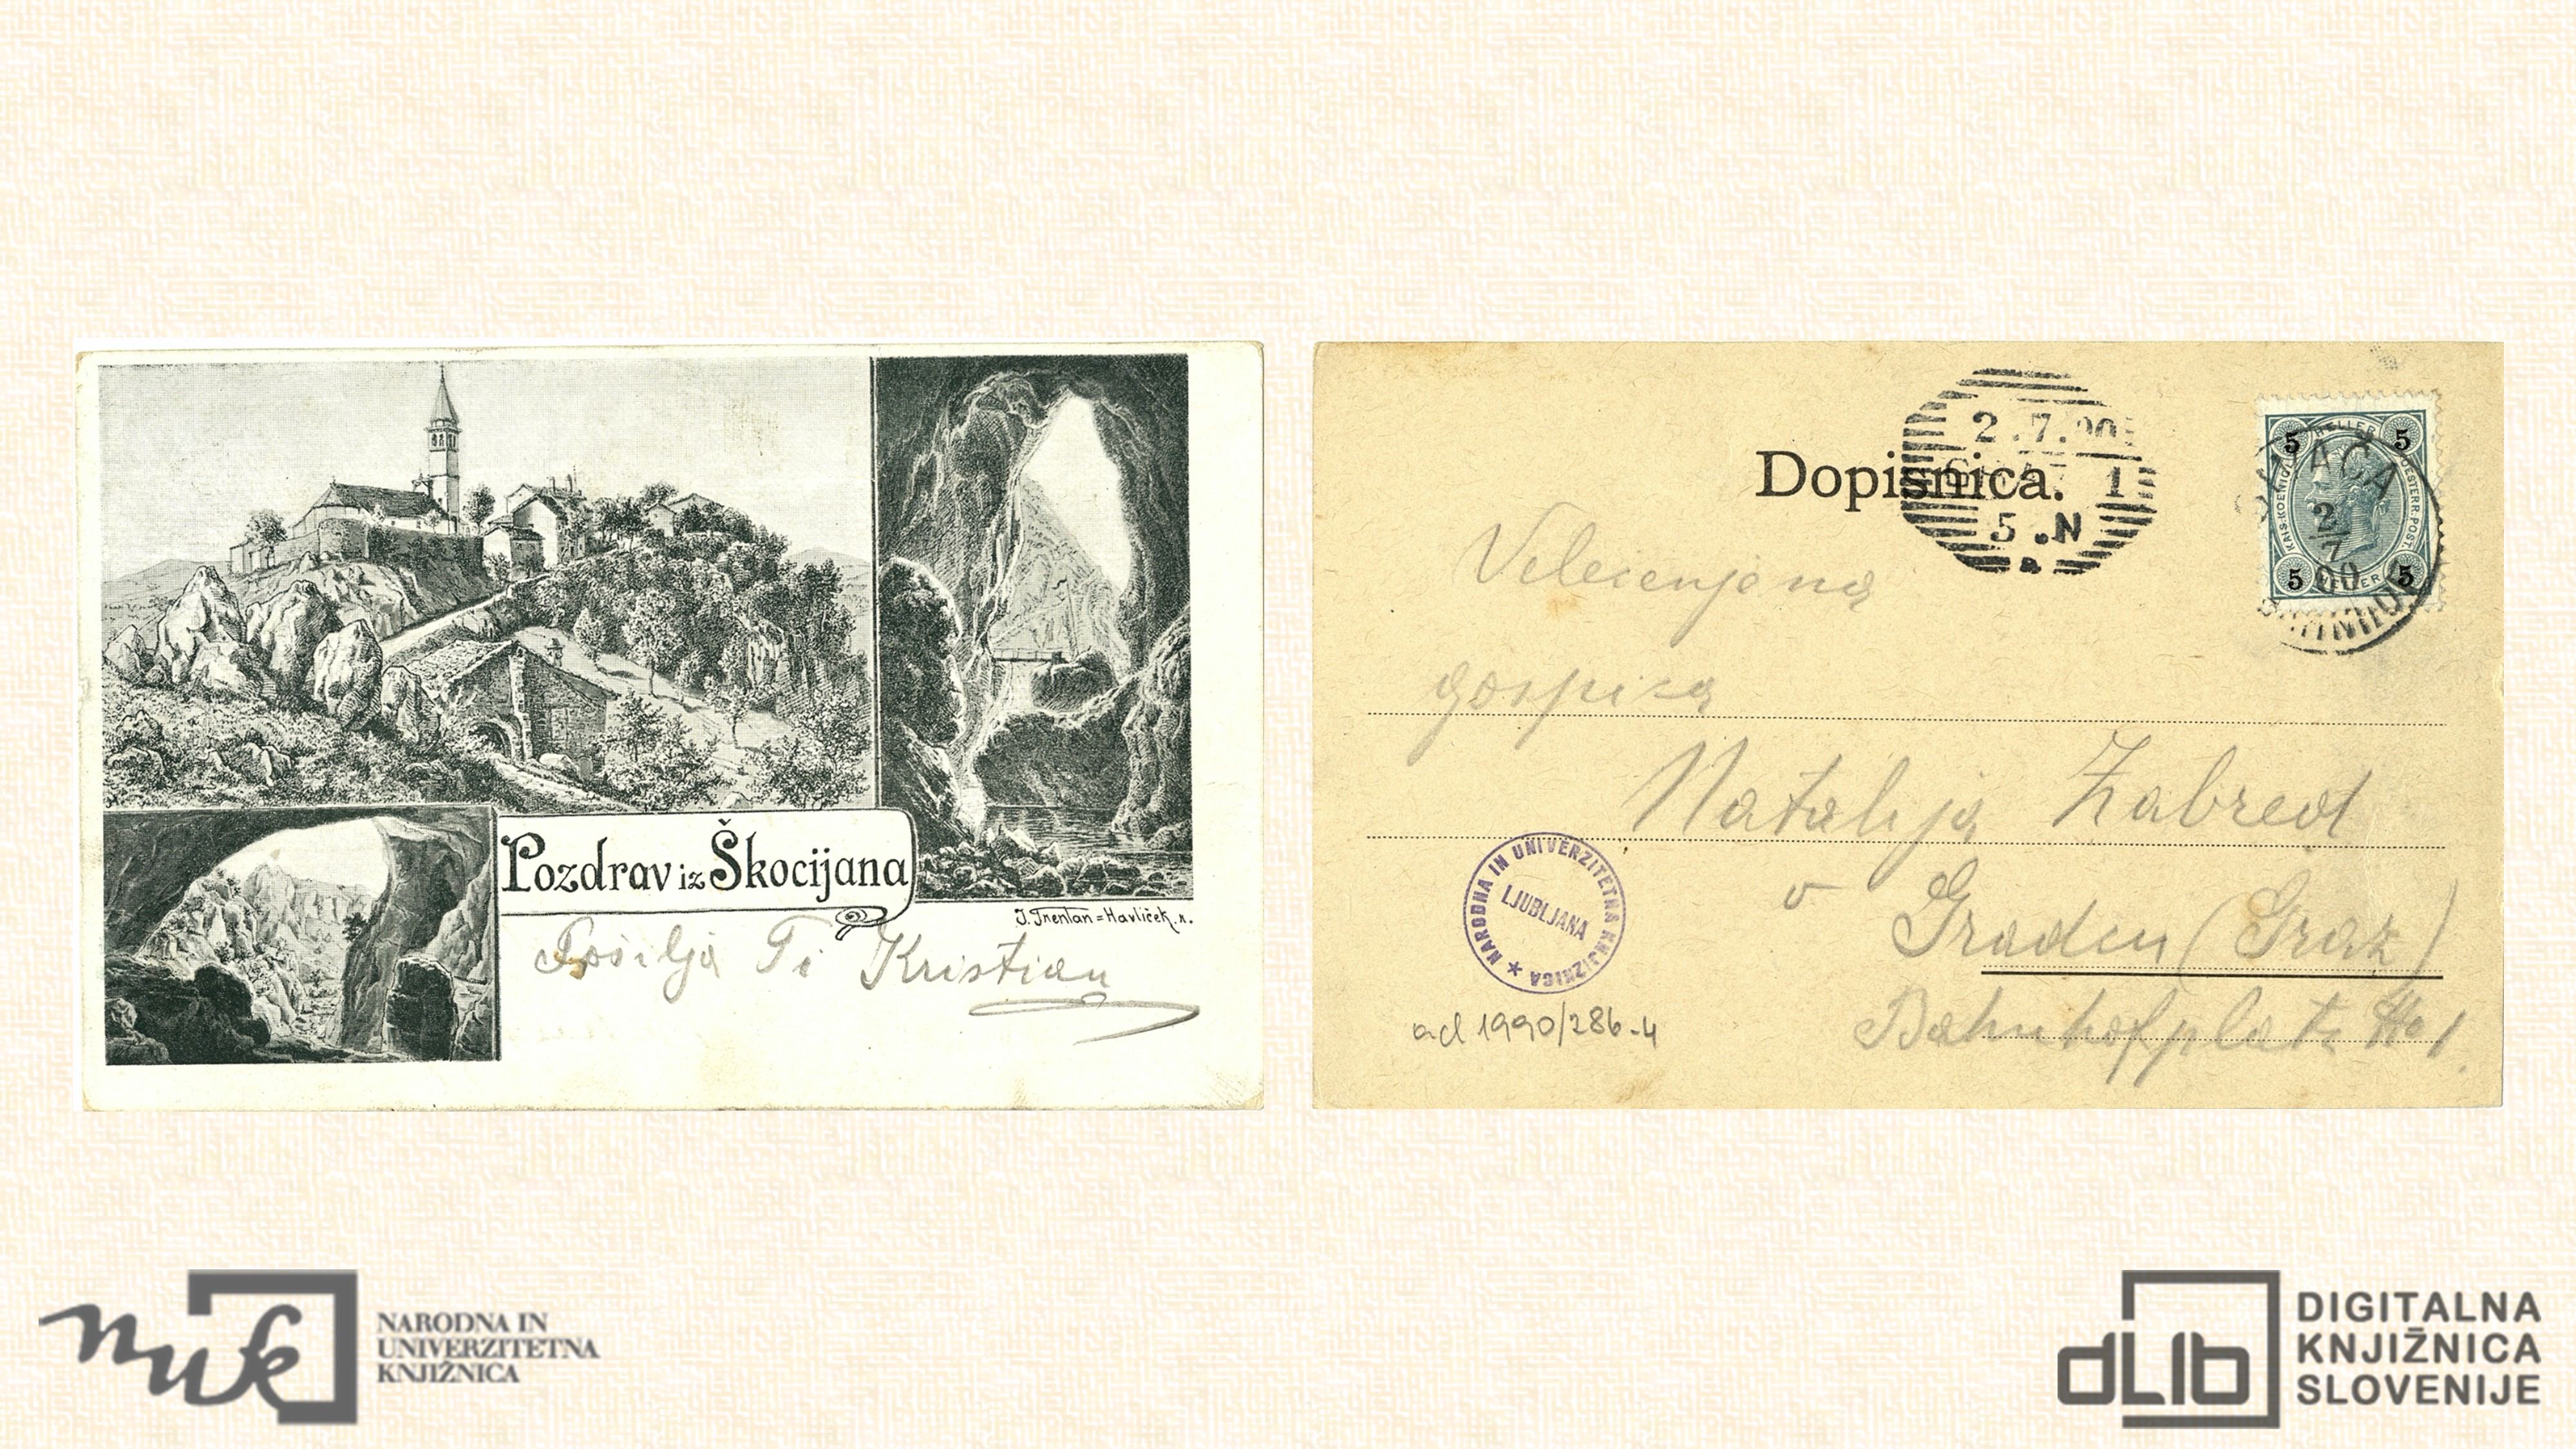 Pozdrav iz Škocijana
J. Trentan=Havlíček. n.
Pošilja Ti Kristian
Dopisnica.
2.7.00
1
5.N
5 HELLER 5
KAIS. KOENIGL. OESTERR. POST.
5 HELLER 5
2/7
00
Velecenjena
gospica
Natalija Žabred
v Gradcu (Graz)
Bahnhofplatz No 1.
NARODNA IN UNIVERZITETNA KNJIŽNICA
LJUBLJANA
ad 1990/286-4
nuk
NARODNA IN
UNIVERZITETNA
KNJIŽNICA
dLib
DIGITALNA
KNJIŽNICA
SLOVENIJE